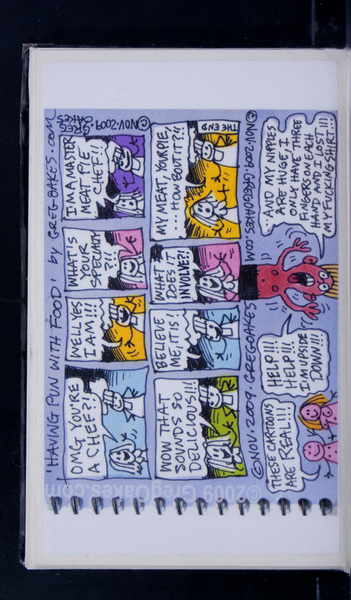 "HAVING PUN WITH FOOD" by GREGOAKES.COM
OMG YOU'RE
A CHEF?!
WELL YES
I AM!!!
WHAT'S
YOUR
SPECIALTY
?!!
I'M A MASTER
MEAT PIE
CHEF!!
©NOV-2009
GREG
OAKES
WOW THAT
SOUNDS SO
DELICIOUS!!!
BELIEVE
ME, IT IS!
WHAT
DOES IT
INVOLVE?!
MY MEAT, YOUR PIE,
...HOW BOUT IT?!!
THE END
©NOV 2009 GREGOAKES
©NOV-2009 GREGOAKES.COM
THESE CARTOONS
ARE REAL!!!
HELP!!!
HELP!!!
I'M UPSIDE
DOWN!!!
...AND MY NIPPLES
ARE HUGE, I
ONLY HAVE THREE
FINGERS ON EACH
HAND AND I LOST
MY FUCKING SHIRT!!!
©2009 GregOakes.com